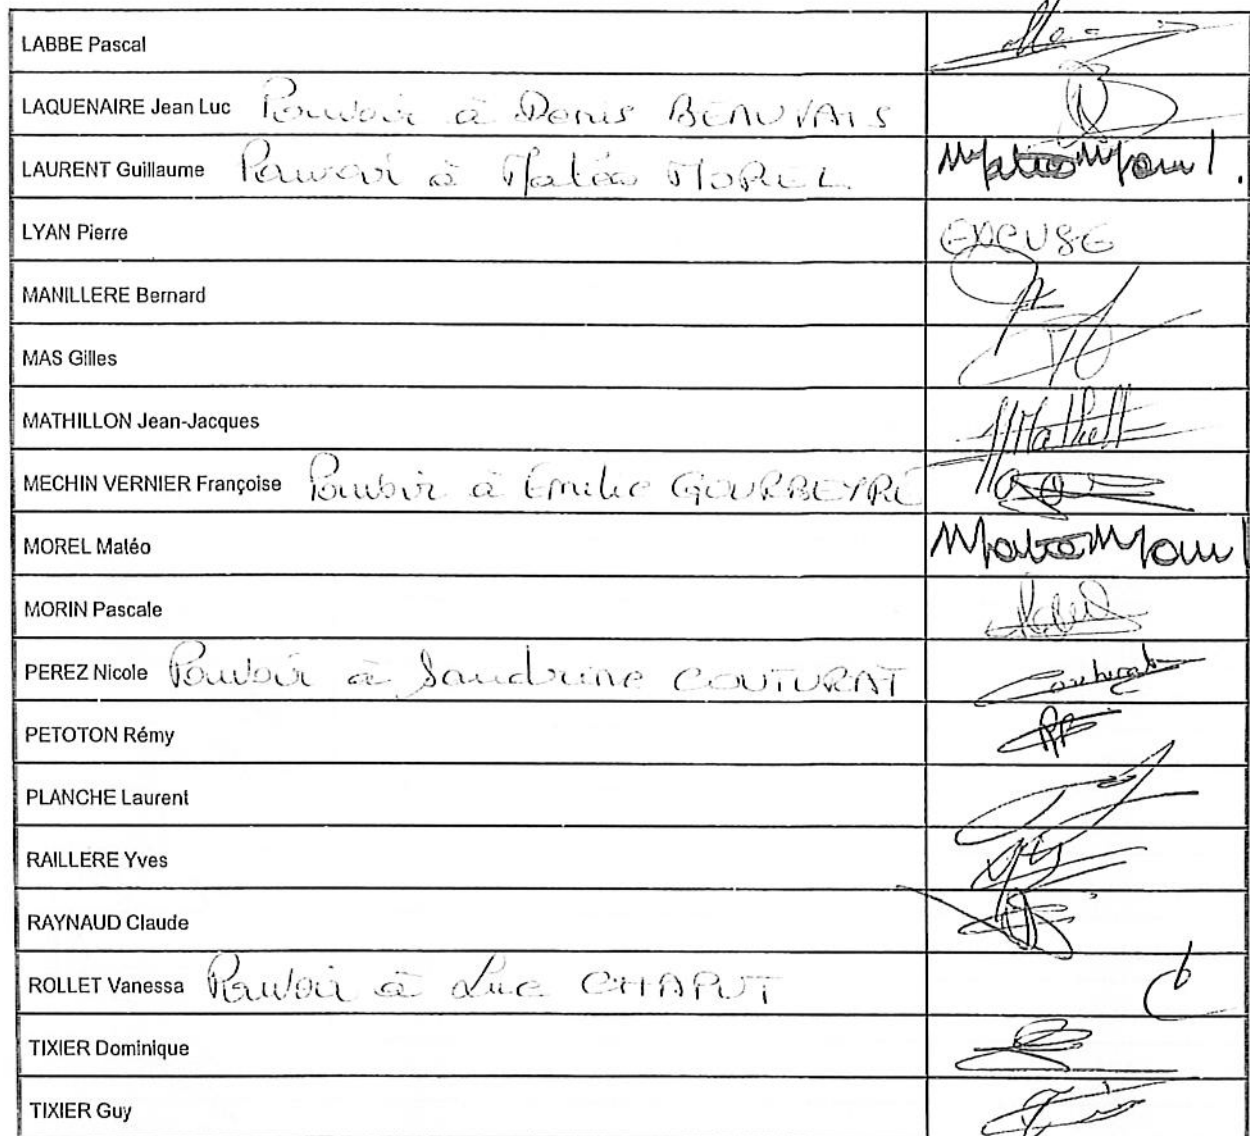 LABBE Pascal
LAQUENAIRE Jean Luc Pouvoir à Denis BEAUVAIS
LAURENT Guillaume Pouvoir à Matéo MOREL Matéo Morel
LYAN Pierre EXCUSE
MANILLERE Bernard
MAS Gilles
MATHILLON Jean-Jacques
MECHIN VERNIER Françoise Pouvoir à Emilie GOURBEYRE
MOREL Matéo Matéo Morel
MORIN Pascale
PEREZ Nicole Pouvoir à Sandrine COUTURAT Couturat
PETOTON Rémy
PLANCHE Laurent
RAILLERE Yves
RAYNAUD Claude
ROLLET Vanessa Pouvoir à Luc CHAPUT
TIXIER Dominique
TIXIER Guy